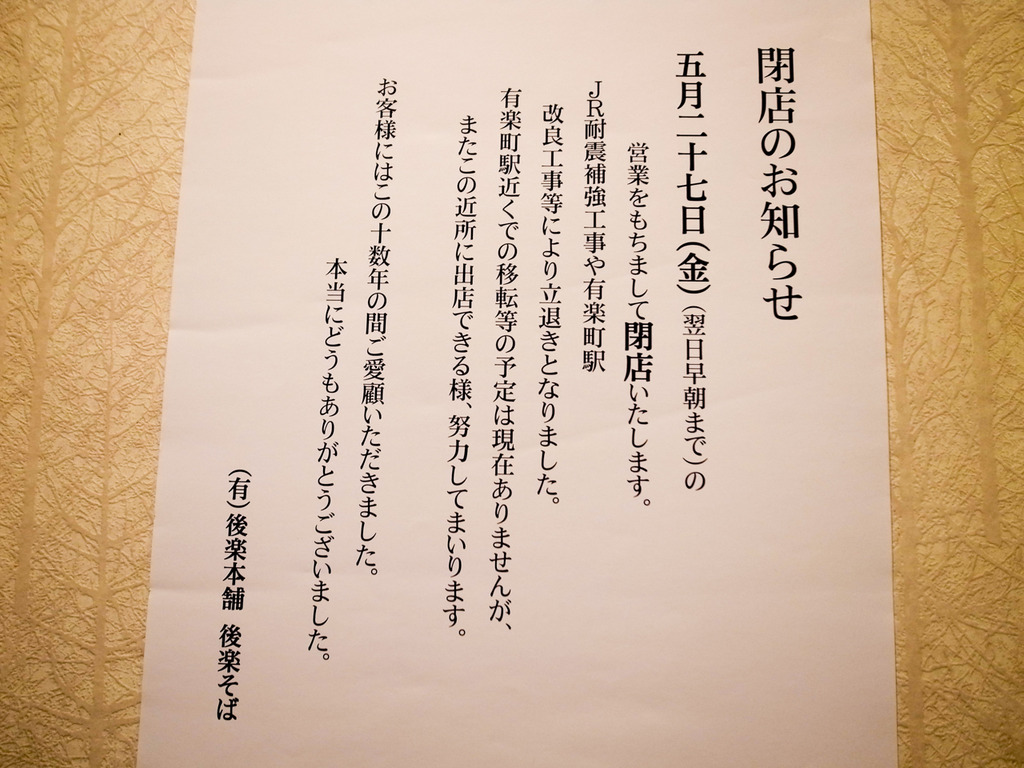 閉店のお知らせ
五月二十七日(金)(翌日早朝まで)の
営業をもちまして閉店いたします。
JR耐震補強工事や有楽町駅
改良工事等により立退きとなりました。
有楽町駅近くでの移転等の予定は現在ありませんが、
またこの近所に出店できる様、努力してまいります。
お客様にはこの十数年の間ご愛顧いただきました。
本当にどうもありがとうございました。
(有)後楽本舗 後楽そば